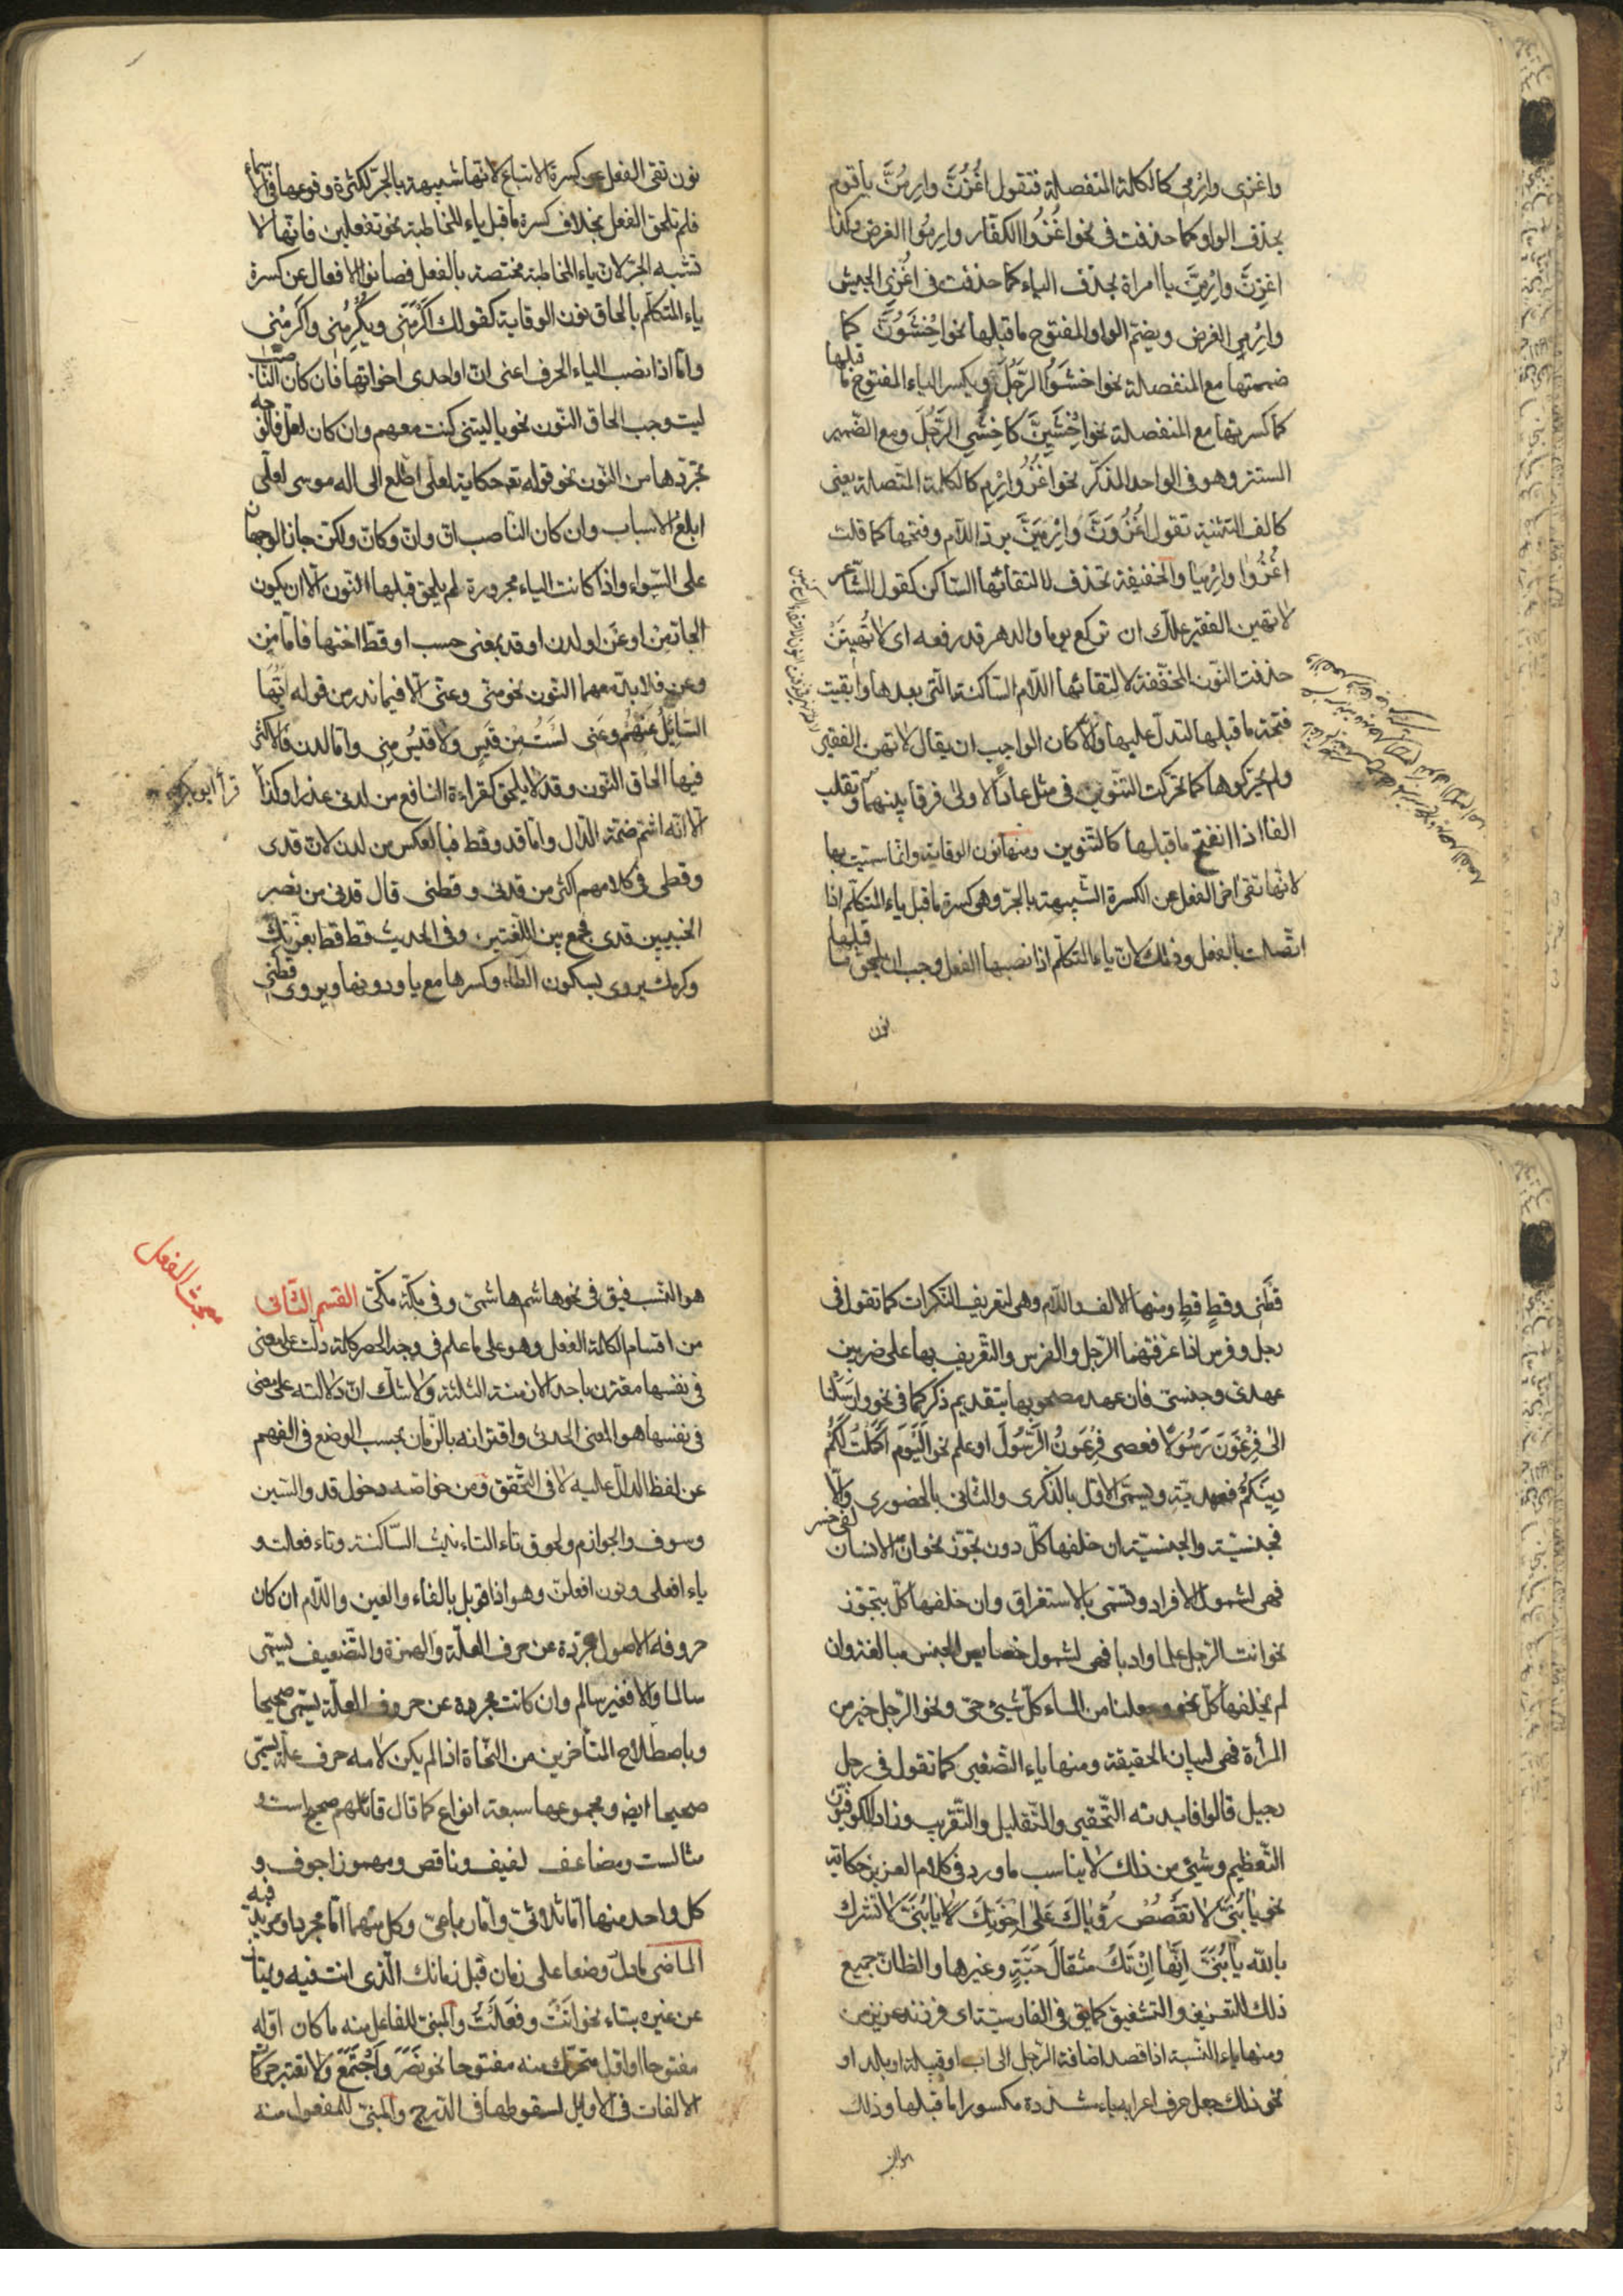 واغزى وارمى كالكلمة المنفصلة فتقول اغْزُنَّ وارمُنَّ ياقوم
بحذف الواو كما حذفت فى نحو اغزُوا الكفّار وارموا الغرض وكذا
اغزِنَّ وارْمِنَّ يا امراة بحذف الياء كما حذفت فى اغْزِى الجيش
وارْمِى الغرض ويضمّ الواو المفتوح ماقبلها نحو اخْشَوُنَّ كما
ضممتها مع المنفصلة نحو اخشَوُا الرّجُلَ ويكسر الياء المفتوح ما قبلها
كما كسرتها مع المنفصلة نحو اخْشَيِنَّ كاخشَىِ الرَّجُلَ ومع الضّمير
المستتر وهو فى الواحد المذكّر نحو اغْزُ وارْمِ كالكلمة المتّصلة يعنى
كالف التثنية تقول اغْزُوَنَّ وارْمِيَنَّ بردّ اللّام وفتحها كما قلت
اغْزُوا وارْمِيا والخفيفة تحذف لالتقائها السّاكن كقول الشّاعر
لا تهين الفقير علّك ان تركع يوما والدهر قد رفعه اى لا تُهِينَنْ
حذفت النّون المخفّفة لالتقائها اللّام السّاكنة التى بعدها وابقيت
فتحة ماقبلها لتدلّ عليها والّا كان الواجب ان يقال لا تهن الفقير
ولم يحرّكوها كما تحرّكت التّنوين فى مثل عادًا الاولى فرقا بينهما وتقلب
الفا اذا انفتح ماقبلها كالتّنوين ومنها نون الوقاية وانّما سمّيت بها
لانّها تقى اخر الفعل عن الكسرة الشّبيهة بالجرّ وهى كسرة ماقبل ياء المتكلّم اذا
اتّصلت بالفعل وذلك لانّ ياء المتكلّم اذا نصبها الفعل وجب ان يلحق ما قبلها
نون
نون تقى الفعل عن كسرة الاتباع لانّها شبيهة بالجرّ لكثرة وقوعها فى الاسماء
فلم تلحق الفعل بخلاف كسرة ماقبل ياء المخاطبة نحو تفعلين فانّها لا
تشبه الجرّ لانّ ياء المخاطبة مختصّة بالفعل فصانوا الافعال عن كسرة
ياء المتكلّم بالحاق نون الوقاية كقولك اكْرَمَنِى ويُكْرِمُنِى واكْرِمْنِى
وامّا اذا نصب الياء الحرف اعنى انّ او احدى اخواتها فان كان النّاصب
ليت وجب الحاق النّون نحو ياليتنى كنت معهم وان كان لعلّ فالوجه
تجرّدها من النّون نحو قوله تعه حكاية لعلى اطّلع الى اله موسى لعلّى
ابلغ الاسباب وان كان النّاصب انّ وانّ وكانّ ولكنّ جاز الوجهان
على السّواء واذا كانت الياء مجرورة لم يلحق قبلها النّون الّا ان يكون
الجارّ من او عن او لدن او قد بمعنى حسب او قطّ اختها فامّا من
وعن فلا بدّ معهما النّون نحو منّى وعنّى الّا فيما ندر من قوله ايّها
السّائِلُ عَنْهُم وعَنى لَسْتُ مِن قَيسٍ ولا قَيسُ مِنِى وامّا لدن فالاكثر
فيها الحاق النّون وقد لا يلحق كقراءة النّافع من لدنى عذرا وكذا
قرأ ابو بكر
الّا انّه اشمّ ضمّة الدّال وامّا قد وقط فبالعكس من لدن لانّ قدى
وقطى فى كلامهم اكثر من قدنى وقطنى قال قدنى من نصر
الخبيبين قدى فجمع بين اللّغتين وفى الحديث قط قط بعزّتك
وكرمك يروى بسكون الطاء وكسرها مع ياء ودونها ويروى قطنى
قَطْنِى وقطٍ قطٍ ومنها الالف واللّام وهى لتعريف النّكرات كما تقول فى
رجل وفرس اذا عرّفتهما الرّجل والفرس والتّعريف بها على ضربين
عهدىّ وجنسىّ فان عهد مصحوبها بتقديم ذكر كما فى نحو وارسَلْنا
الى فِرْعَوْنَ رَسُولًا فعصى فِرْعَوْنُ الرَّسُولَ او علم نحو الْيَوْمَ اَكْمَلْتُ لَكُمْ
دينَكُمْ فعهديّة ويسمّى الاوّل بالذّكرى والثّانى بالحضورى والّا
فجنسيّة والجنسيّة ان خلفها كلّ دون تجوّز نحو انّ الانسان لفى خسر
فهى لشمول الافراد وتسمّى بالاستغراق وان خلفها كلّ بتجوّز
نحو انت الرّجل علما وادبا فهى لشمول خصايص الجنس مبالغة وان
لم يخلفها كلّ نحو وجعلنا من الماء كلّ شيئ حىّ ونحو الرّجل خير من
المرأة فهى لبيان الحقيقة ومنها ياء التّصغير كما تقول فى رجل
رجيل قالوا فايدته التّحقير والتّقليل والتّقريب وزاد الكوفيّون
التّعظيم وشيئ من ذلك لا يناسب ماورد فى كلام العزيز حكاية
نحو يا بُنَىَّ لا تقْصُصْ رؤْياكَ عَلى اِخْوَتِكَ يا بُنَىَّ لا تشرك
باللّه يا بُنَىَّ اِنَّها اِنْ تَكُ مِثْقالَ حَبَّةٍ وغيرها والظّانّ جميع
ذلك للتّعزيز والتّشفيق كما يق فى الفارسيّة اى فرزند عزيز من
ومنها ياء النّسبة اذا قصد اضافة الرّجل الى اب او قبيلة او بلد او
نحو ذلك جعل حرف اعرابه ياء مشدّدة مكسورا ما قبلها وذلك
مبحث الفعل
هو النّسب فيق فى نحو هاشم هاشمىّ وفى مكّة مكّىّ القسم الثّانى
من اقسام الكلمة الفعل وهو على ما علم فى وجه الحصر كلمة دلّت على معنى
فى نفسها مقترن باحد الازمنة الثلثة ولا شكّ انّ دلالته على معنى
فى نفسها هو المعنى الحدثى واقترانه بالزّمان بحسب الوضع فى الفهم
عن لفظ الدالّ عليه لا فى التّحقق ومن خواصّه دخول قد والسّين
وسوف والجوازم ولحوق تاء التاءنيث السّاكنة وتاء فعلت و
ياء افعلى ونون افعلنّ وهو اذا قوبل بالفاء والعين واللّام ان كان
حروفه الاصول مجرّدة عن حرف العلّة والهمزة والتّضعيف يسمّى
سالما والّا فغير سالم وان كانت مجرّدة عن حروف العلّة يسمّى صحيحا
وباصطلاح المتأخرين من النّحاة اذا لم يكن لامه حرف علّة يسمّى
صحيحا ايضا ومجموعها سبعة انواع كما قال قائلهم صحيح است و
مثالست ومضاعف لفيف وناقص ومهموز اجوف و
كل واحد منها امّا ثلاثىّ وامّا رباعىّ وكل منهما امّا مجرد او مزيد فيه
الماضى ما دلّ وضعا على زمان قبل زمانك الّذى انت فيه ويمتاز
عن غيره بتاء نحو انَتْ وفعَلَتْ والمبنى للفاعل منه ما كان اوّله
مفتوحا او اوّل متحرّك منه مفتوحا نحو نَصَرَ واجْتَمَعَ ولا تعتبر حركات
الالفات فى الاوايل لسقوطها فى الدّرج والمبنىّ للمفعول منه